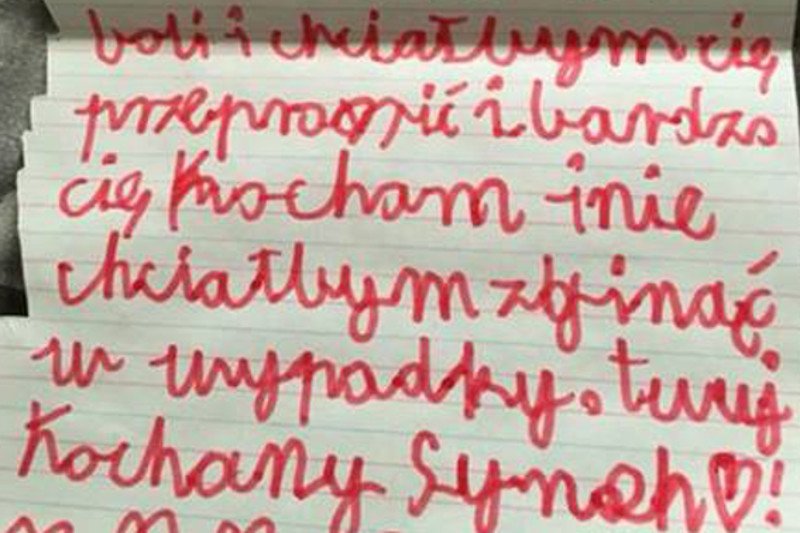 boli i chciałbym cię
przeprosić i bardzo
cię kocham i nie
chciałbym zginąć
w wypadky. twuj
kochany Synek♡!